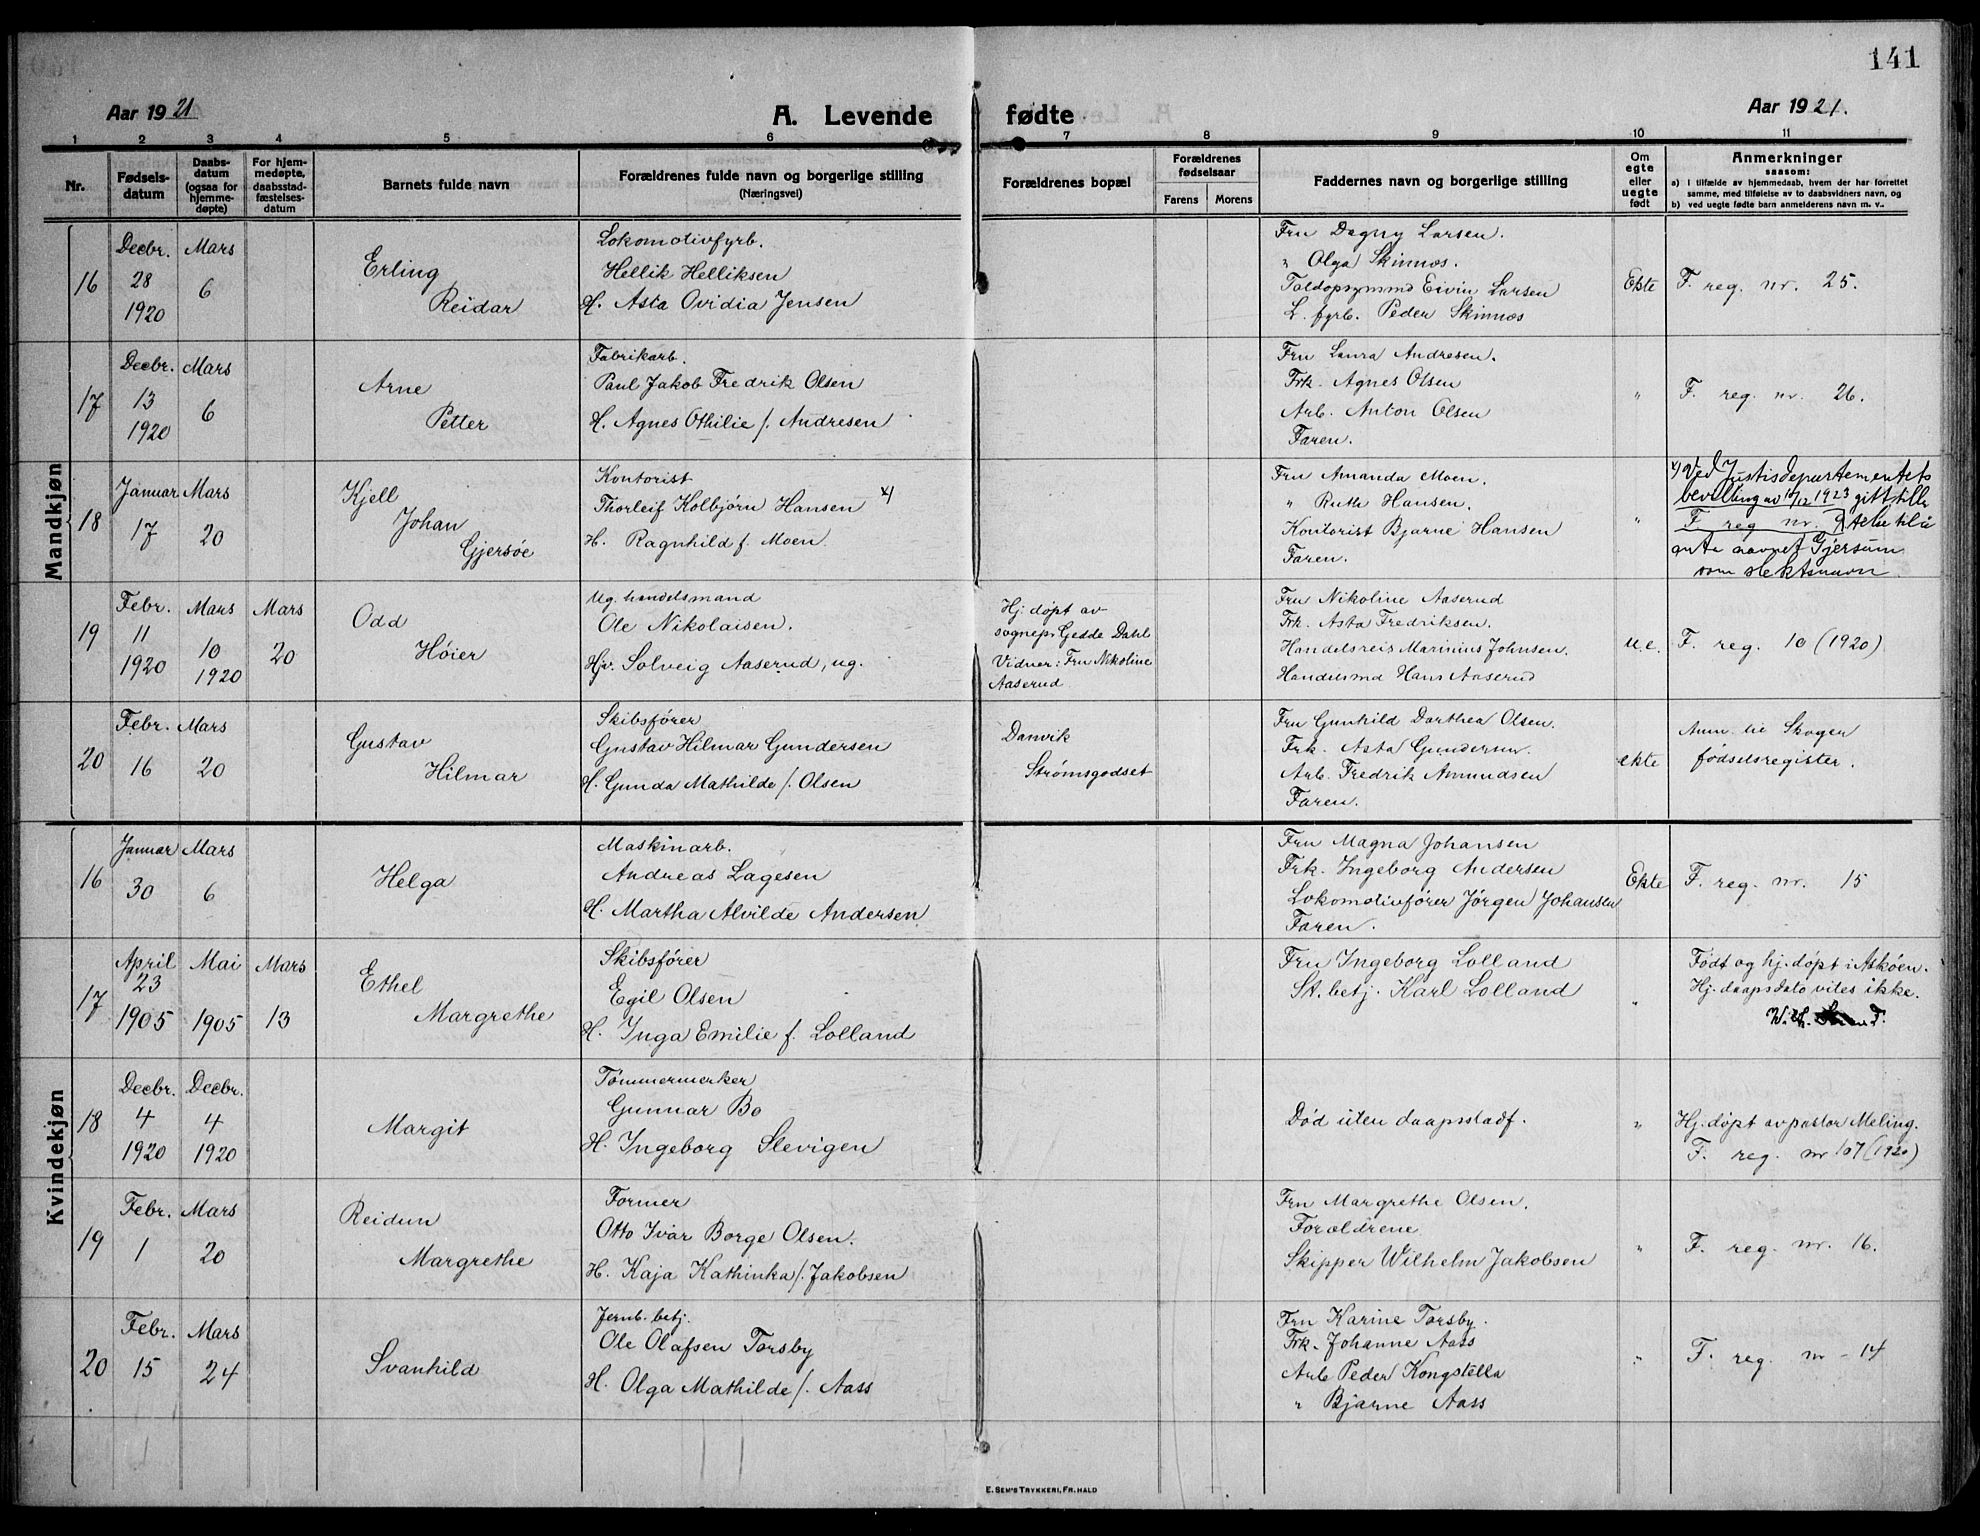 141
Aar 1921
A. Levende fødte
Aar 1921.
1 2 3 4 5 6 7 8 9 10 11
Nr.
Fødsels-
datum
Daabs-
datum
(ogsaa for
hjemme-
døpte)
For hjem-
medøpte,
daabsstad-
fæstelses-
datum
Barnets fulde navn
Forældrenes fulde navn og borgerlige stilling
(Næringsvei)
Forældrenes bopæl
Forældrenes
fødselsaar
Farens Morens
Faddernes navn og borgerlige stilling
Om
egte
eller
uegte
født
Anmerkninger
saasom:
a) i tilfælde av hjemmedaab, hvem der har forrettet
samme, med tilføielse av to daabsvidners navn, og
b) ved uegte fødte barn anmelderens navn m. v..
Mandkjøn
16
Decbr.
28
1920
Mars
6
Erling
Reidar
Lokomotivfyrb.
Hellik Helliksen
H. Asta Ovidia Jensen
Fru Dagny Larsen.
" Olga Skinnes.
Toldopsynmd Eivin Larsen
L. fyrb. Peder Skinnes
Ekte
F. reg. nr. 25.
17
Decbr.
13
1920
Mars
6
Arne
Petter
Fabrikarb.
Paul Jakob Fredrik Olsen
H. Agnes Othilie f. Andresen
Fru Laura Andresen.
Frk. Agnes Olsen
Arb. Anton Olsen
Faren.
"
F. reg. nr. 26.
18
Januar
17
Mars
20
Kjell
Johan
Gjersøe
Kontorist
Thorleif Kolbjørn Hansen x)
H. Ragnhild f. Moen.
Fru Amanda Moen.
" Ruth Hansen.
Kontorist Bjarne Hansen
Faren.
"
x) Ved Justisdepartementets
bevilling av 1923 gitt tilla
F reg nr. 9
navnet Gjersum
som slektsnavn.
19
Febr.
11
1920
Mars
10
1920
Mars
20
Odd
Høier
Ug. handelsmand
Ole Nikolaisen.
Hjv. Solveig Aaserud, ug.
Hj. døpt av
sognepr. Gedde Dahl
Vidner: Fru Nikoline
Aaserud
Fru Nikoline Aaserud
Frk. Asta Fredriksen.
Handelsreis Marinius Johnsen.
Handelsmd Hans Aaserud
u.e.
F. reg. 10 (1920)
20
Febr.
16
Mars
20
Gustav
Hilmar
Skibsfører
Gustav Hilmar Gundersen
H. Gunda Mathilde f. Olsen
Danvik
Strømsgodset
Fru Gunhild Dorthea Olsen.
Frk. Asta Gundersen.
Arb. Fredrik Amundsen
Faren.
ekte
Anm. til Skoger
fødselsregister.
Kvindekjøn
16
Januar
30
Mars
6
Helga
Maskinarb.
Andreas Lagesen
H. Martha Alvilde Andersen
Fru Magna Johansen
Frk. Ingeborg Andersen
Lokomotivfører Jørgen Johansen
Faren.
Ekte
F. reg. nr. 15
17
April
23
1905
Mai
1905
Mars
13
Ethel
Margrethe
Skibsfører
Egil Olsen
H. Inga Emilie f. Lolland
Fru Ingeborg Lolland
St. betj. Karl Lolland
"
Født og hj. døpt i Askøen.
Hj. daapsdato vites ikke.
18
Decbr.
4
1920
Decbr.
4
1920
Margit
Tømmermerker
Gunnar Bo
H. Ingeborg Slevigen
Død uten daapsstadf.
"
Hj. døpt av pastor Meling.
F. reg. nr 107 (1920)
19
Febr.
1
Mars
20
Reidun
Margrethe
Former
Otto Ivar Borge Olsen.
H. Kaja Kathinka f. Jakobsen
Fru Margrethe Olsen.
Forældrene
Skipper Wilhelm Jakobsen
"
F. reg. nr. 16.
20
Febr.
15
Mars
24
Svanhild
Jernb. betj.
Ole Olafsen Torsby
H. Olga Mathilde f. Aass
Fru Karine Torsby.
Frk. Johanne Aass
Arb Peder Kongstella
" Bjarne Aass
"
F. reg. nr - 14
E. SEM'S TRYKKERI, FR. HALD